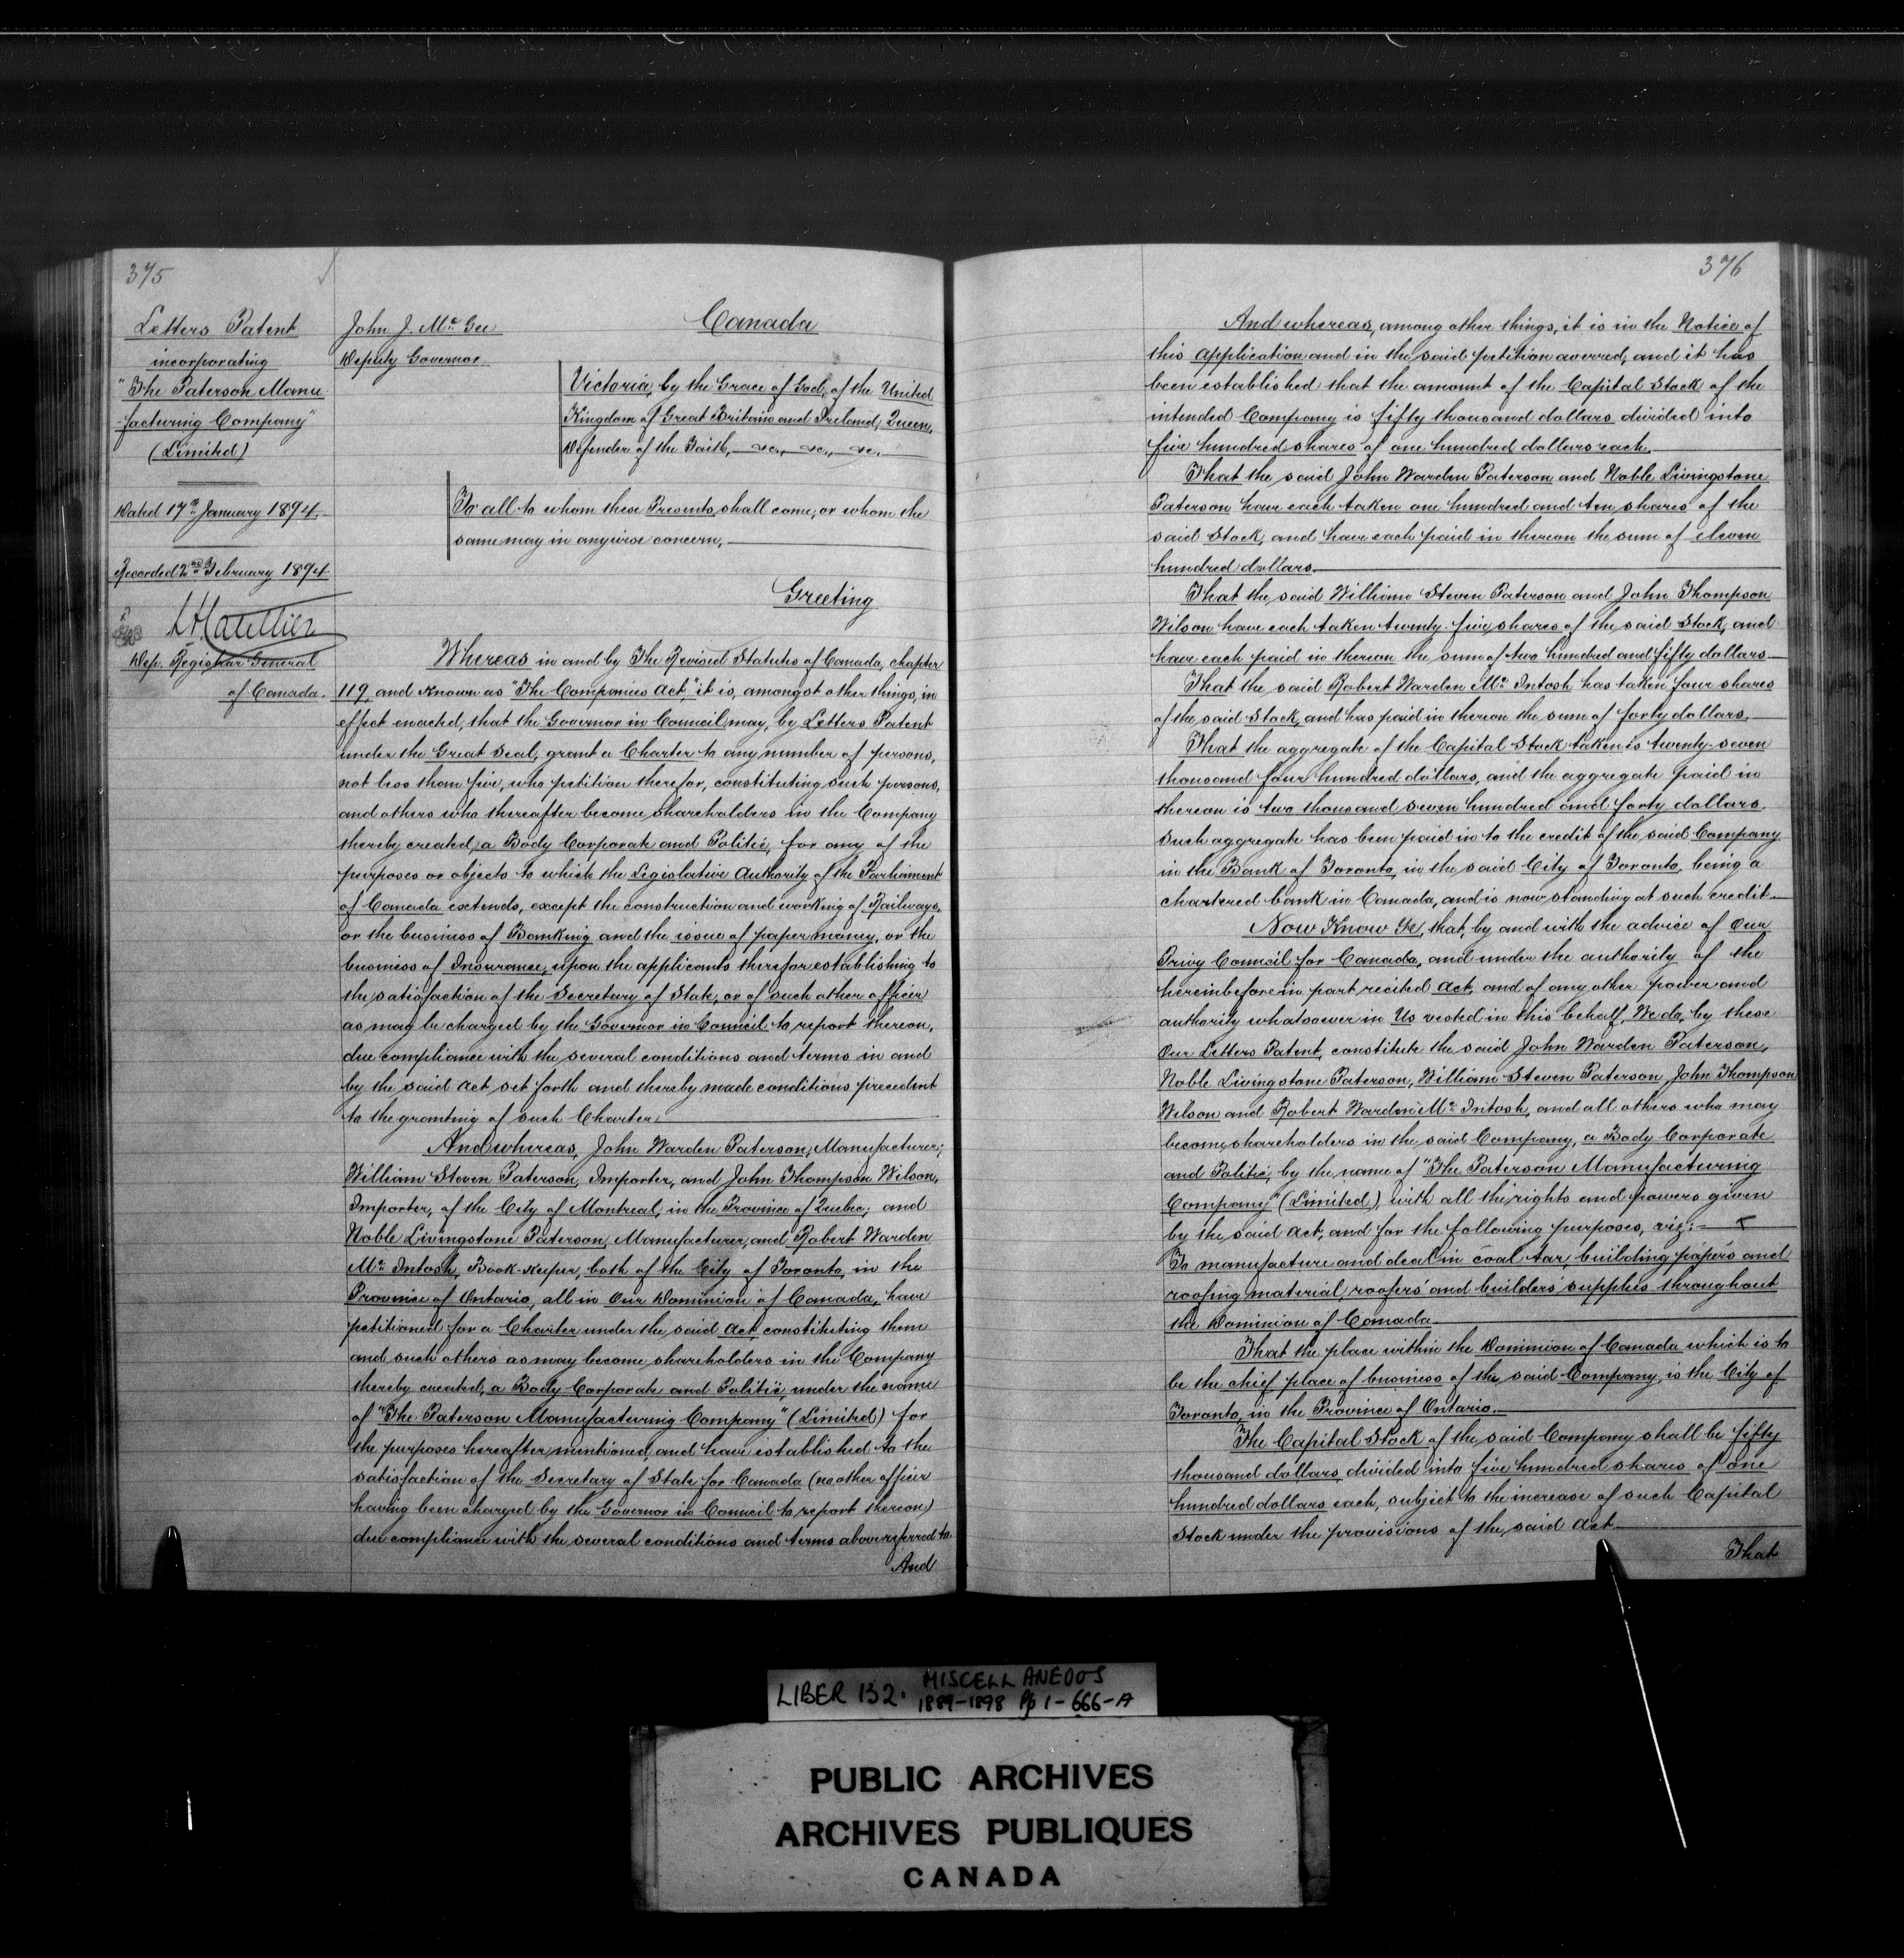 375
Letters Patent
incorporating
"The Paterson Manu-
facturing Company"
(Limited)
Dated 17th January 1894.
Recorded 2nd February 1894
Dep. Registrar General
of Canada.
John J. McGee
Deputy Governor
Canada
Victoria, by the Grace of God, of the United
Kingdom of Great Britain and Ireland, Queen,
Defender of the Faith, &c., &c., &c.
To all to whom these Presents shall come, or whom the
same may in anywise concern,
Greeting
Whereas in and by The Revised Statutes of Canada, chapter
119, and known as "The Companies Act," it is, amongst other things, in
effect enacted, that the Governor in Council may, by Letters Patent
under the Great Seal, grant a Charter to any number of persons,
not less than five, who petition therefor, constituting such persons,
and others who thereafter become shareholders in the Company
thereby created, a Body Corporate and Politic, for any of the
purposes or objects to which the Legislative Authority of the Parliament
of Canada extends, except the construction and working of Railways,
or the business of Banking and the issue of paper money, or the
business of Insurance, upon the applicants therefor establishing to
the satisfaction of the Secretary of State, or of such other officer
as may be charged by the Governor in Council to report thereon,
due compliance with the several conditions and terms in and
by the said Act set forth and thereby made conditions precedent
to the granting of such Charter.
And whereas, John Warden Paterson, Manufacturer;
William Steven Paterson, Importer, and John Thompson Wilson,
Importer, of the City of Montreal, in the Province of Quebec; and
Noble Livingstone Paterson, Manufacturer, and Robert Warden
McIntosh, Book-keeper, both of the City of Toronto, in the
Province of Ontario, all in Our Dominion of Canada, have
petitioned for a Charter under the said Act, constituting them
and such others as may become shareholders in the Company
thereby created, a Body Corporate and Politic, under the name
of "The Paterson Manufacturing Company" (Limited) for
the purposes hereafter mentioned, and have established to the
satisfaction of the Secretary of State for Canada (no other officer
having been charged by the Governor in Council to report thereon)
due compliance with the several conditions and terms above referred to.
And
376
And whereas, among other things, it is in the Notice of
this application and in the said petition averred, and it has
been established that the amount of the Capital Stock of the
intended Company is fifty thousand dollars divided into
five hundred shares of one hundred dollars each.
That the said John Warden Paterson and Noble Livingstone
Paterson have each taken one hundred and ten shares of the
said Stock, and have each paid in thereon the sum of eleven
hundred dollars.
That the said William Steven Paterson and John Thompson
Wilson have each taken twenty-five shares of the said Stock, and
have each paid in thereon the sum of two hundred and fifty dollars.
That the said Robert Warden McIntosh has taken four shares
of the said Stock, and has paid in thereon the sum of forty dollars.
That the aggregate of the Capital Stock taken is twenty-seven
thousand four hundred dollars, and the aggregate paid in
thereon is two thousand seven hundred and forty dollars.
Such aggregate has been paid in to the credit of the said Company
in the Bank of Toronto, in the said City of Toronto, being a
chartered bank in Canada, and is now standing at such credit.
Now Know Ye, that, by and with the advice of Our
Privy Council for Canada, and under the authority of the
hereinbefore in part recited Act, and of any other power and
authority whatsoever in Us vested in this behalf, We do, by these
Our Letters Patent, constitute the said John Warden Paterson,
Noble Livingstone Paterson, William Steven Paterson, John Thompson
Wilson and Robert Warden McIntosh, and all others who may
become shareholders in the said Company, a Body Corporate
and Politic, by the name of "The Paterson Manufacturing
Company" (Limited), with all the rights and powers given
by the said Act, and for the following purposes, viz:— x
To manufacture and deal in coal tar, building papers and
roofing material, roofers' and builders' supplies throughout
the Dominion of Canada.
That the place within the Dominion of Canada which is to
be the chief place of business of the said Company, is the City of
Toronto, in the Province of Ontario.
The Capital Stock of the said Company shall be fifty
thousand dollars, divided into five hundred shares of one
hundred dollars each, subject to the increase of such Capital
Stock under the provisions of the said Act.
That
LIBER 132. MISCELLANEOUS
1889-1898 Pp 1-666-A
PUBLIC ARCHIVES
ARCHIVES PUBLIQUES
CANADA